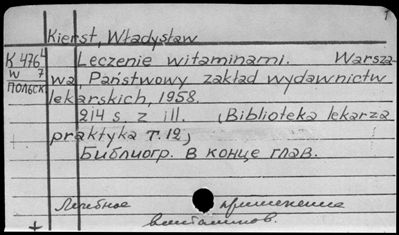 1
Kierst, Władysław
K 4764 Leczenie witaminami. Warsza-
W 7 wa, Państwowy zakład wydawnictw
ПОЛЬСК lekarskich, 1958.
214 s. z ill. (Biblioteka lekarza
praktyka т.12)
Библиогр. в конце глав.
Лечебное применение
витаминов.
+